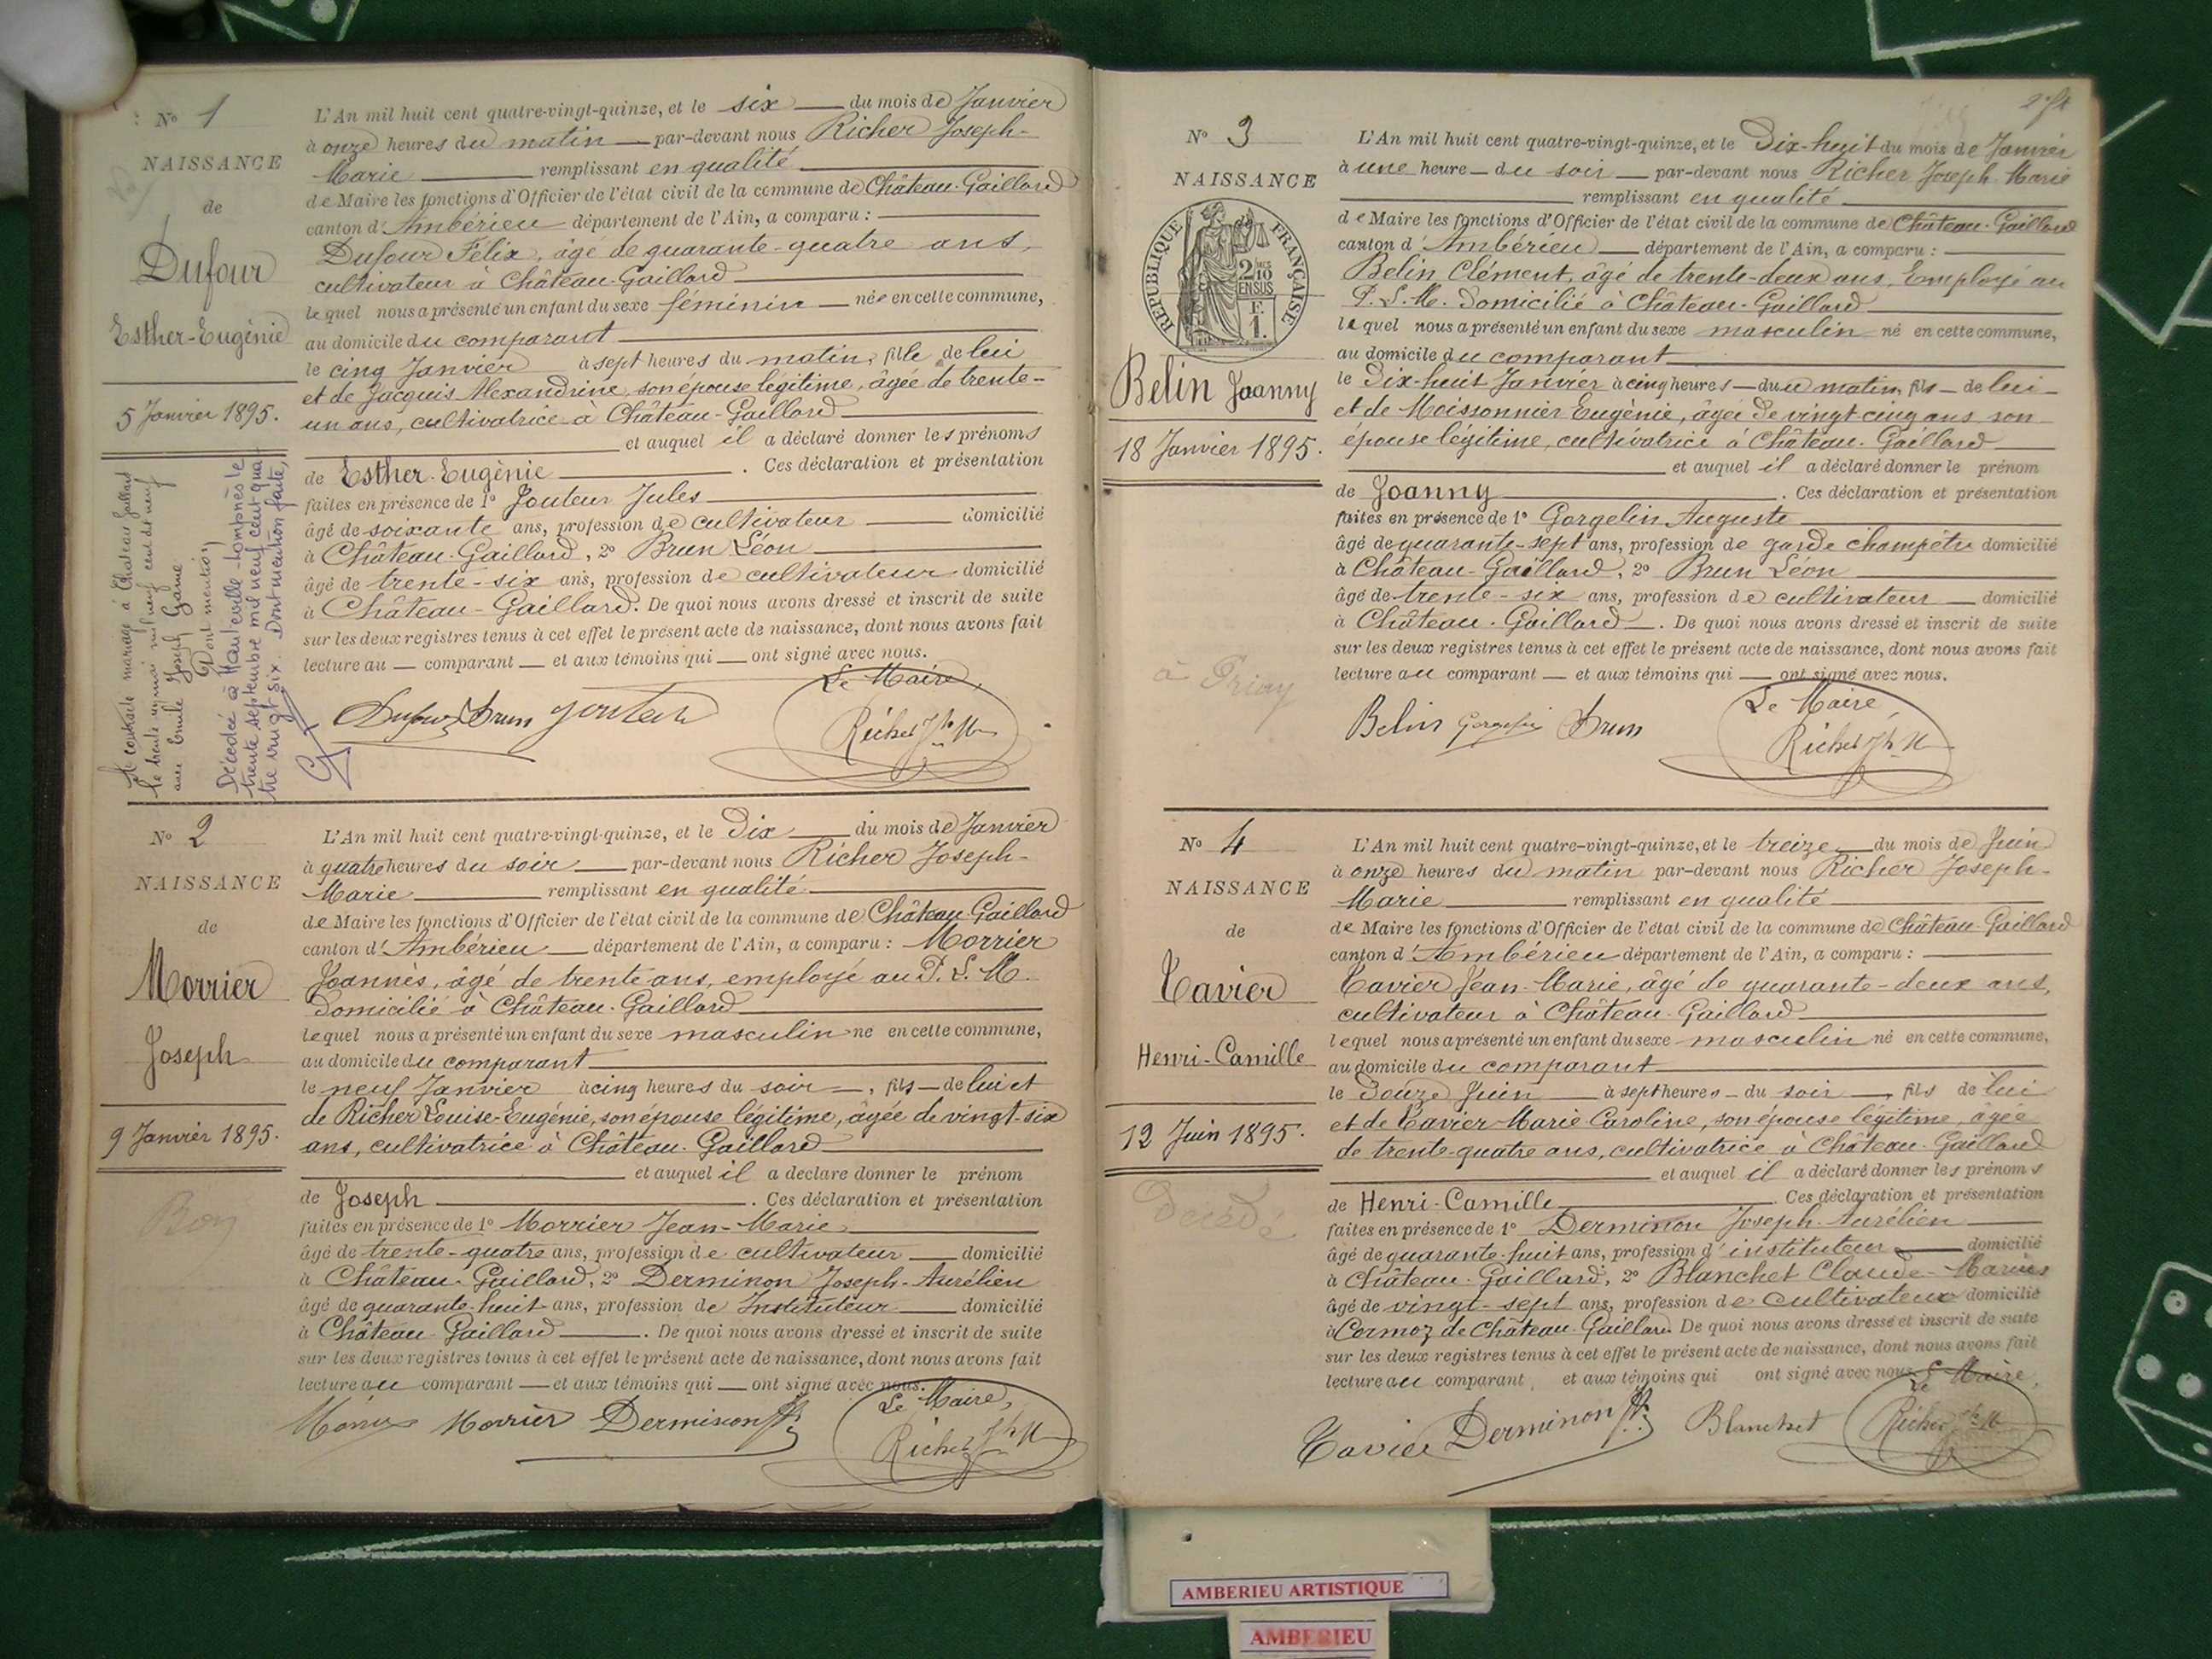 N° 1
NAISSANCE
de
Dufour
Esther-Eugénie
5 Janvier 1895.
A contracté mariage à Château Gaillard
le trente un mai mil neuf cent dix neuf
avec Emile Joseph
Dont mention
Décédée à Hauteville-Lompnès le
trente septembre mil neuf cent qua
tre vingt six. Dont mention faite,
L'An mil huit cent quatre-vingt-quinze, et le six du mois de Janvier
à onze heures du matin par-devant nous Richer Joseph-
Marie remplissant en qualité
de Maire les fonctions d'Officier de l'état civil de la commune de Château-Gaillard
canton d'Ambérieu département de l'Ain, a comparu :
Dufour Félix, âgé de quarante-quatre ans,
cultivateur à Château-Gaillard
lequel nous a présenté un enfant du sexe féminin née en cette commune,
au domicile du comparant
le cinq Janvier à sept heures du matin, fille de lui
et de Jacquis Alexandrine, son épouse légitime, âgée de trente-
un ans, cultivatrice à Château-Gaillard
et auquel il a déclaré donner les prénoms
de Esther-Eugénie. Ces déclaration et présentation
faites en présence de 1° Jouteur Jules
âgé de soixante ans, profession de cultivateur domicilié
à Château-Gaillard, 2° Brun Léon
âgé de trente-six ans, profession de cultivateur domicilié
à Château-Gaillard. De quoi nous avons dressé et inscrit de suite
sur les deux registres tenus à cet effet le présent acte de naissance, dont nous avons fait
lecture au comparant et aux témoins qui ont signé avec nous.
Le Maire,
Dufour Brun Jouteur Richer Jph M
N° 2
NAISSANCE
de
Morrier
Joseph
9 Janvier 1895.
Bon
L'An mil huit cent quatre-vingt-quinze, et le Dix du mois de Janvier
à quatre heures du soir par-devant nous Richer Joseph-
Marie remplissant en qualité
de Maire les fonctions d'Officier de l'état civil de la commune de Château-Gaillard
canton d'Ambérieu département de l'Ain, a comparu : Morrier
Joannès, âgé de trente ans, employé au P. L. M.
domicilié à Château-Gaillard
lequel nous a présenté un enfant du sexe masculin né en cette commune,
au domicile du comparant
le neuf Janvier à cinq heures du soir, fils de lui et
de Richer Louise-Eugénie, son épouse légitime, âgée de vingt-six
ans, cultivatrice à Château-Gaillard
et auquel il a déclaré donner le prénom
de Joseph. Ces déclaration et présentation
faites en présence de 1° Morrier Jean-Marie
âgé de trente-quatre ans, profession de cultivateur domicilié
à Château-Gaillard, 2° Derminon Joseph-Aurélien
âgé de quarante-huit ans, profession de Instituteur domicilié
à Château-Gaillard. De quoi nous avons dressé et inscrit de suite
sur les deux registres tenus à cet effet le présent acte de naissance, dont nous avons fait
lecture au comparant et aux témoins qui ont signé avec nous.
Le Maire,
Morrier Morrier Derminon Richer Jph M
N° 3
NAISSANCE
RÉPUBLIQUE FRANÇAISE
2/10 EN SUS
F.
1.
Belin Joanny
18 Janvier 1895.
à Priay
L'An mil huit cent quatre-vingt-quinze, et le Dix-huit du mois de Janvier
à une heure du soir par-devant nous Richer Joseph Marie
remplissant en qualité
de Maire les fonctions d'Officier de l'état civil de la commune de Château-Gaillard
canton d'Ambérieu département de l'Ain, a comparu :
Belin Clément, âgé de trente-deux ans, Employé au
P. L. M. domicilié à Château-Gaillard
lequel nous a présenté un enfant du sexe masculin né en cette commune,
au domicile du comparant
le Dix-huit Janvier à cinq heures du matin, fils de lui
et de Moissonnier Eugénie, âgée de vingt-cinq ans son
épouse légitime, cultivatrice à Château-Gaillard
et auquel il a déclaré donner le prénom
de Joanny. Ces déclaration et présentation
faites en présence de 1° Gorgelin Auguste
âgé de quarante-sept ans, profession de garde champêtre domicilié
à Château-Gaillard, 2° Brun Léon
âgé de trente-six ans, profession de cultivateur domicilié
à Château-Gaillard. De quoi nous avons dressé et inscrit de suite
sur les deux registres tenus à cet effet le présent acte de naissance, dont nous avons fait
lecture au comparant et aux témoins qui ont signé avec nous.
Le Maire
Belin Gorgelin Brun Richer Jph M
N° 4
NAISSANCE
de
Tavier
Henri-Camille
12 Juin 1895.
Décédé
L'An mil huit cent quatre-vingt-quinze, et le treize du mois de Juin
à onze heures du matin par-devant nous Richer Joseph-
Marie remplissant en qualité
de Maire les fonctions d'Officier de l'état civil de la commune de Château-Gaillard
canton d'Ambérieu département de l'Ain, a comparu :
Tavier Jean-Marie, âgé de quarante-deux ans,
cultivateur à Château-Gaillard
lequel nous a présenté un enfant du sexe masculin né en cette commune,
au domicile du comparant
le Douze Juin à sept heures du soir, fils de lui
et de Tavier Marie Caroline, son épouse légitime, âgée
de trente-quatre ans, cultivatrice à Château-Gaillard
et auquel il a déclaré donner les prénoms
de Henri-Camille. Ces déclaration et présentation
faites en présence de 1° Derminon Joseph-Aurélien
âgé de quarante-huit ans, profession d'instituteur domicilié
à Château-Gaillard, 2° Blanchet Claude-Marius
âgé de vingt-sept ans, profession de cultivateur domicilié
à Cormoz de Château-Gaillard De quoi nous avons dressé et inscrit de suite
sur les deux registres tenus à cet effet le présent acte de naissance, dont nous avons fait
lecture au comparant, et aux témoins qui ont signé avec nous.
Le Maire,
Tavier Derminon Blanchet Richer Jph M
AMBERIEU ARTISTIQUE
AMBERIEU